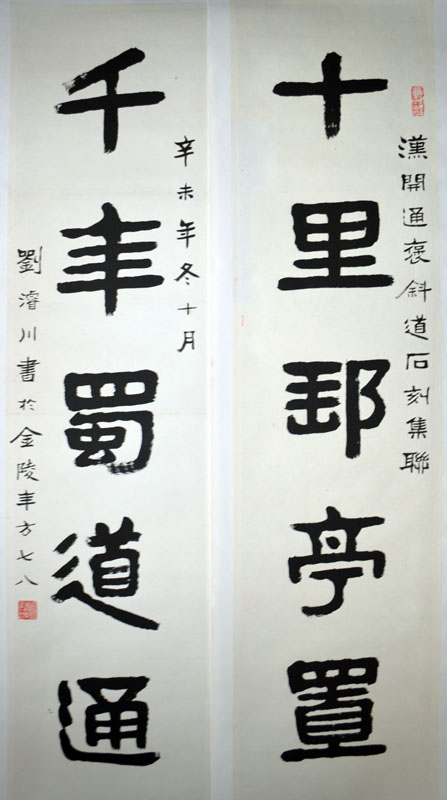 漢開通褒斜道石刻集聯
十里邮亭置
千年蜀道通
辛未年冬十月
劉濬川書於金陵年方七八